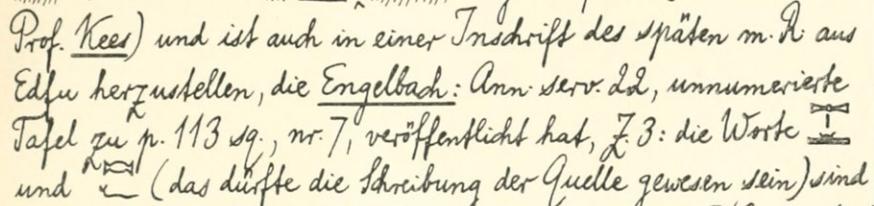 Prof. Kees) und ist auch in einer Inschrift des späten m. R. aus
Edfu herzustellen, die Engelbach: Ann. serv. 22, unnumerierte
Tafel zu p. 113 sq., nr. 7, veröffentlicht hat, Z. 3: die Worte
und (das dürfte die Schreibung der Quelle gewesen sein) sind